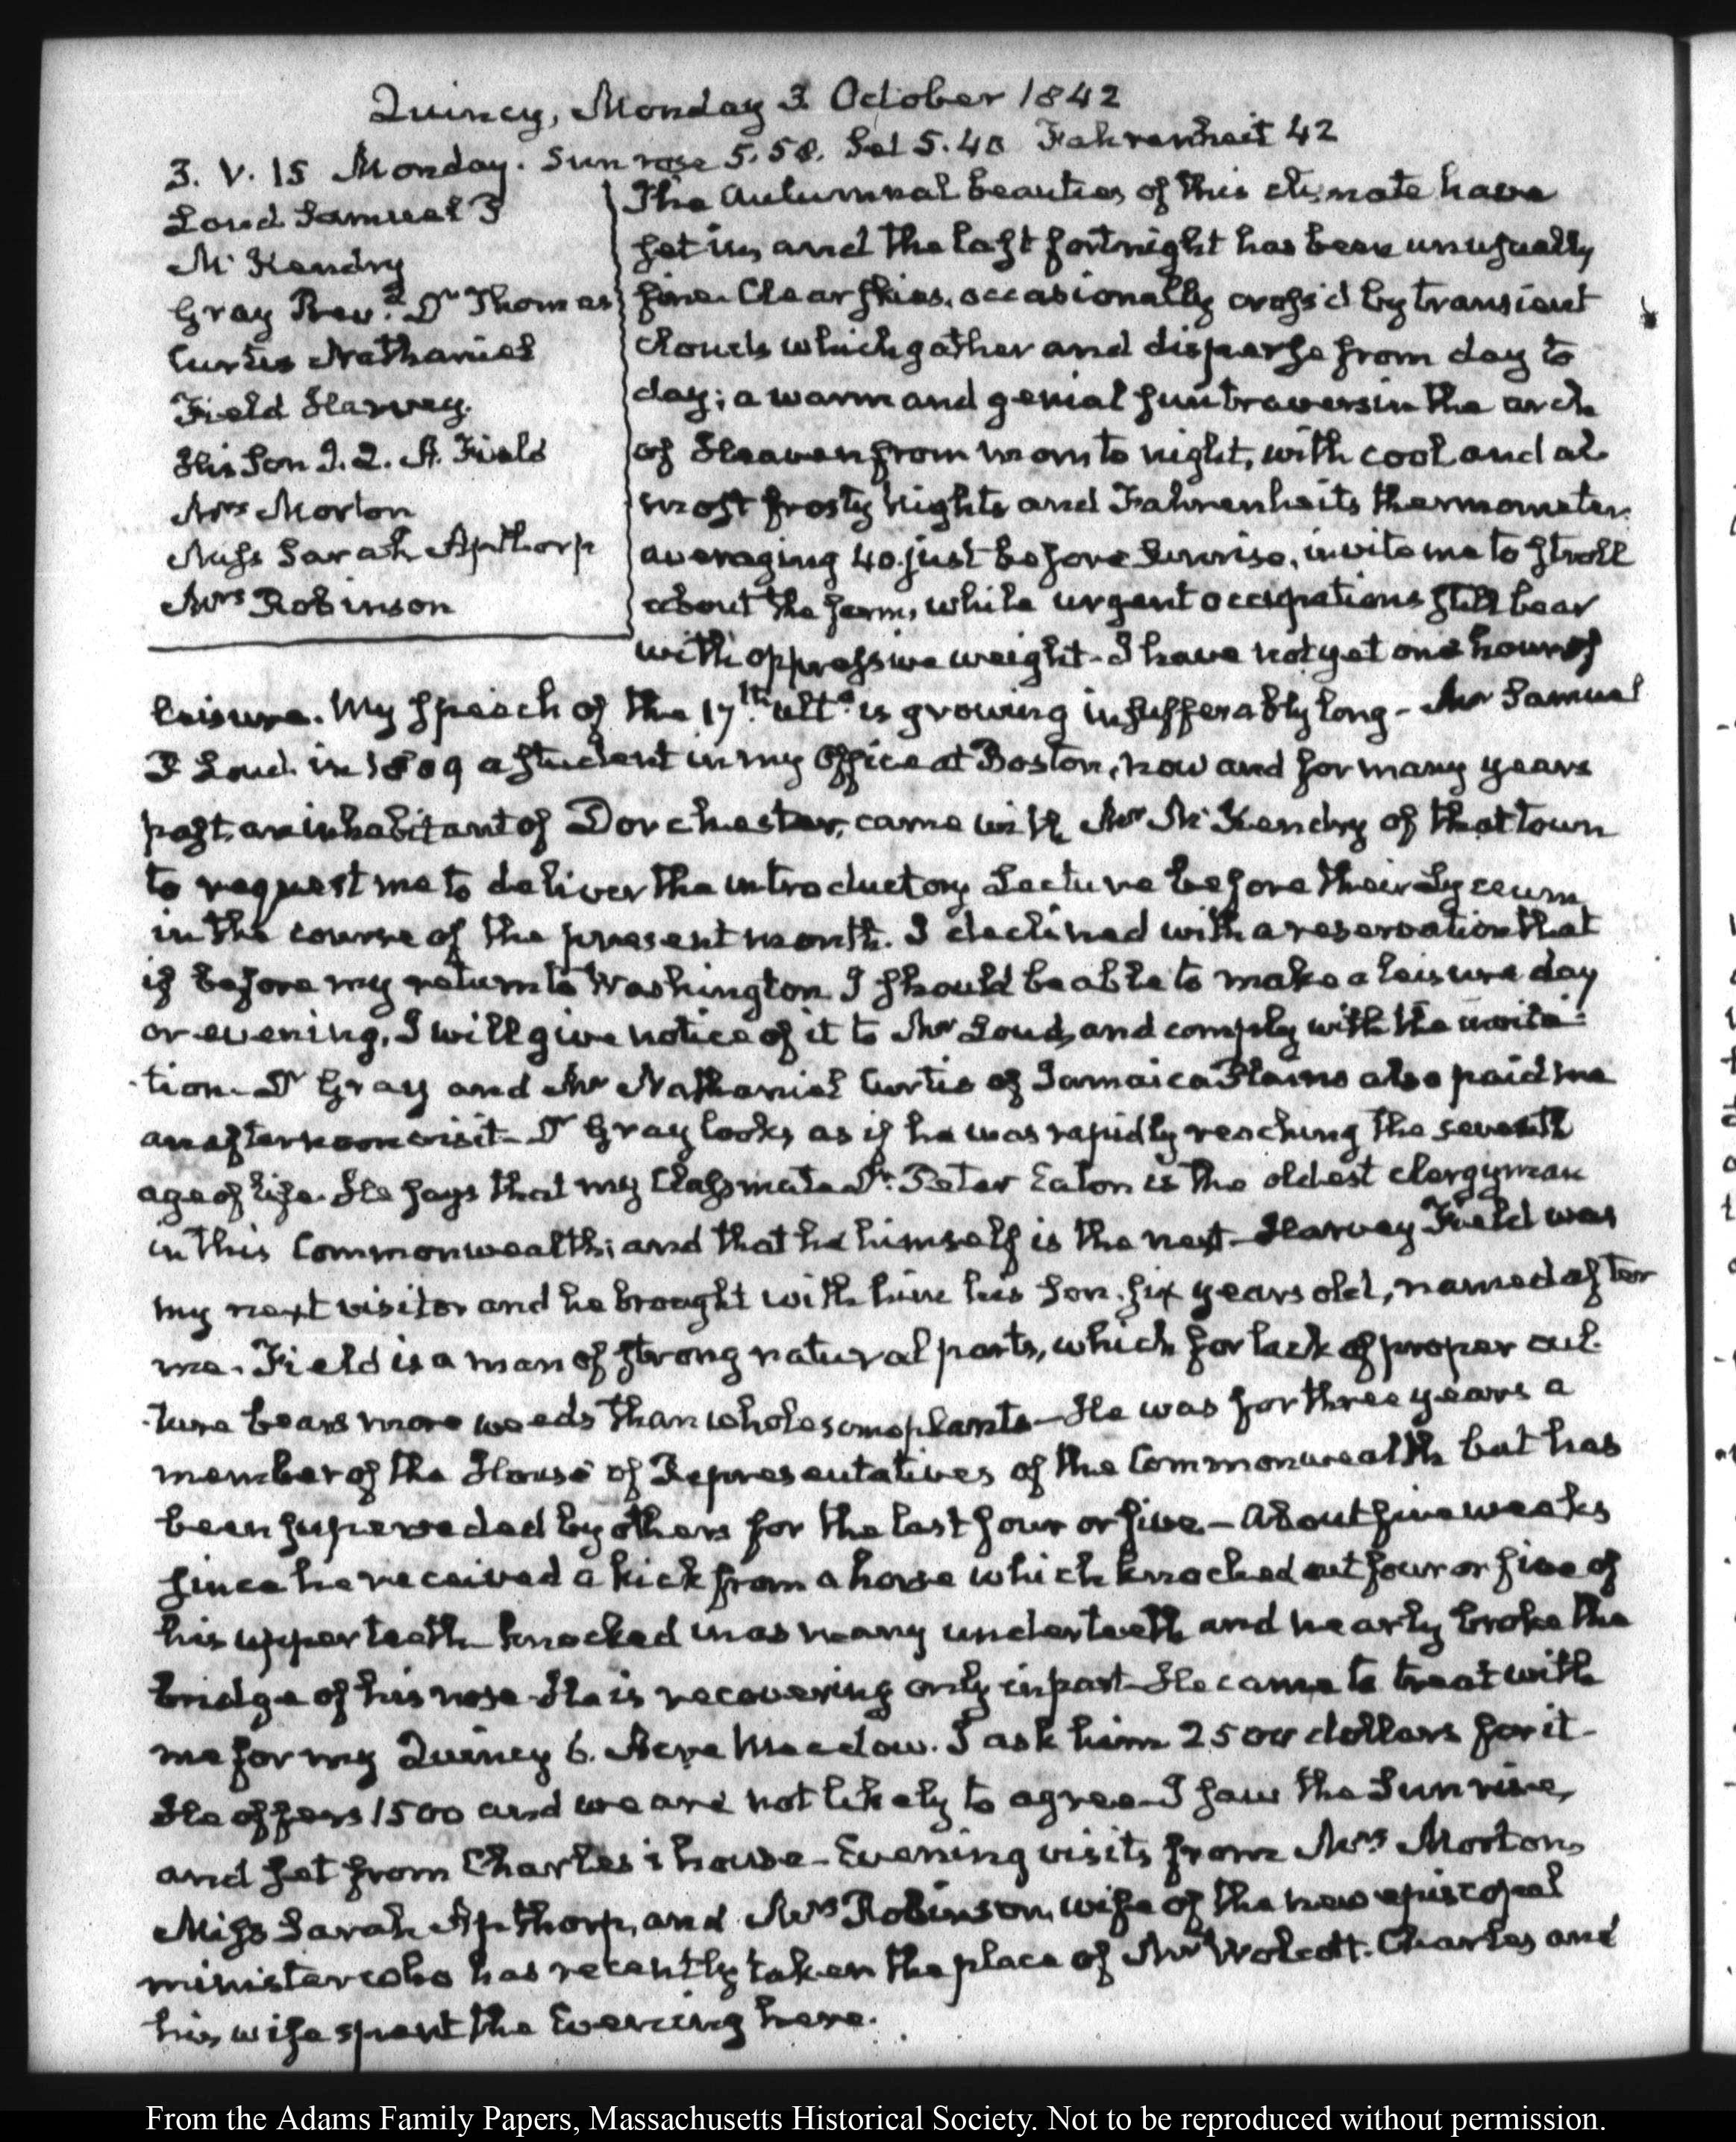 Quincy, Monday 3 October 1842
3. V. 15 Monday. Sun rose 5.58. Set 5.40 Fahrenheit 42
Loud Samuel P
McKendry
Gray Revd. Dr Thomas
Curtis Nathaniel
Field Harvey.
His Son J. Q. A. Field
Mrs Morton
Miss Sarah Apthorp
Mrs Robinson
The Autumnal beauties of this climate have
set in, and the last fortnight has been unusually
fine. Clear skies, occasionally cross'd by transient
clouds which gather and disperse from day to
day; a warm and genial sun traversin the arch
of Heaven from morn to night, with cool and al-
most frosty nights and Fahrenheits thermometer
averaging 40. just before Sunrise, invite me to stroll
about the farm, while urgent occupations still bear
with oppressive weight. I have not yet one hour of
leisure. My speech of the 17th. ulto. is growing insufferably long – Mr Samuel
P Loud in 1809 a student in my Office at Boston, now and for many years
past, an inhabitant of Dorchester, came with Mr McKendry of that town
to request me to deliver the introductory Lecture before their Lyceum
in the course of the present month. I declined with a reservation that
if before my return to Washington I should be able to make a leisure day
or evening, I will give notice of it to Mr Loud, and comply with the invita-
-tion – Dr Gray and Mr Nathaniel Curtis of Jamaica Plains also paid me
an afternoon visit – Dr Gray looks, as if he was rapidly reaching the seventh
age of life. He says that my Classmate Dr. Peter Eaton is the oldest clergyman
in this Commonwealth; and that he himself is the next – Harvey Field was
my next visitor and he brought with him his son. six years old, named after
me. Field is a man of strong natural parts, which for lack of proper cul-
-ture bears more weeds than wholesome plants – He was for three years a
member of the House of Representatives of the Commonwealth but has
been superseded by others for the last four or five. – About five weeks
since he received a kick from a horse which knocked out four or five of
his upper teeth – knocked in as many under teeth and nearly broke the
bridge of his nose – He is recovering only in part – He came to treat with
me for my Quincy 6. Acre Meadow. I ask him 2500 dollars for it –
He offers 1500 and we are not likely to agree – I saw the Sun rise,
and set from Charles's house – Evening visits from Mrs Morton,
Miss Sarah Apthorp, and Mrs Robinson, wife of the new episcopal
minister who has recently taken the place of Mr Wolcott. Charles and
his wife spent the Evening here.
From the Adams Family Papers, Massachusetts Historical Society. Not to be reproduced without permission.